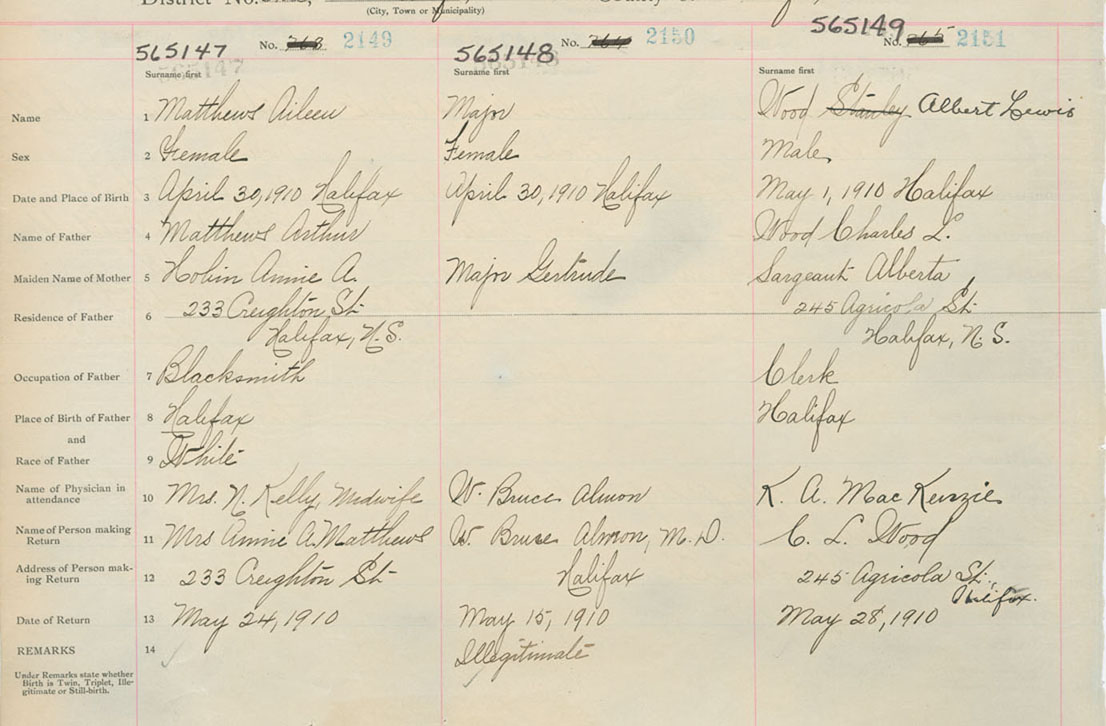 District No.
(City, Town or Municipality)
565147 No. 763 2149 565148 No. 764 2150 565149 No. 765 2151
Surname first Surname first Surname first
Name 1 Matthews Aileen Major Wood Stanley Albert Lewis
Sex 2 Female Female Male
Date and Place of Birth 3 April 30, 1910 Halifax April 30, 1910 Halifax May 1, 1910 Halifax
Name of Father 4 Matthews Arthur Wood Charles L.
Maiden Name of Mother 5 Hobin Annie A. Major Gertrude Sargeant Alberta
Residence of Father 6 233 Creighton St 245 Agricola St
Halifax, N.S. Halifax, N.S.
Occupation of Father 7 Blacksmith Clerk
Place of Birth of Father 8 Halifax Halifax
and
Race of Father 9 White
Name of Physician in attendance 10 Mrs. N. Kelly, Midwife W. Bruce Almon K. A. MacKenzie
Name of Person making Return 11 Mrs Annie A. Matthews W. Bruce Almon, M.D. C. L. Wood
Address of Person mak-ing Return 12 233 Creighton St Halifax 245 Agricola St., Halifax.
Date of Return 13 May 24, 1910 May 15, 1910 May 28, 1910
REMARKS 14 Illegitimate
Under Remarks state whether
Birth is Twin, Triplet, Ille-
gitimate or Still-birth.